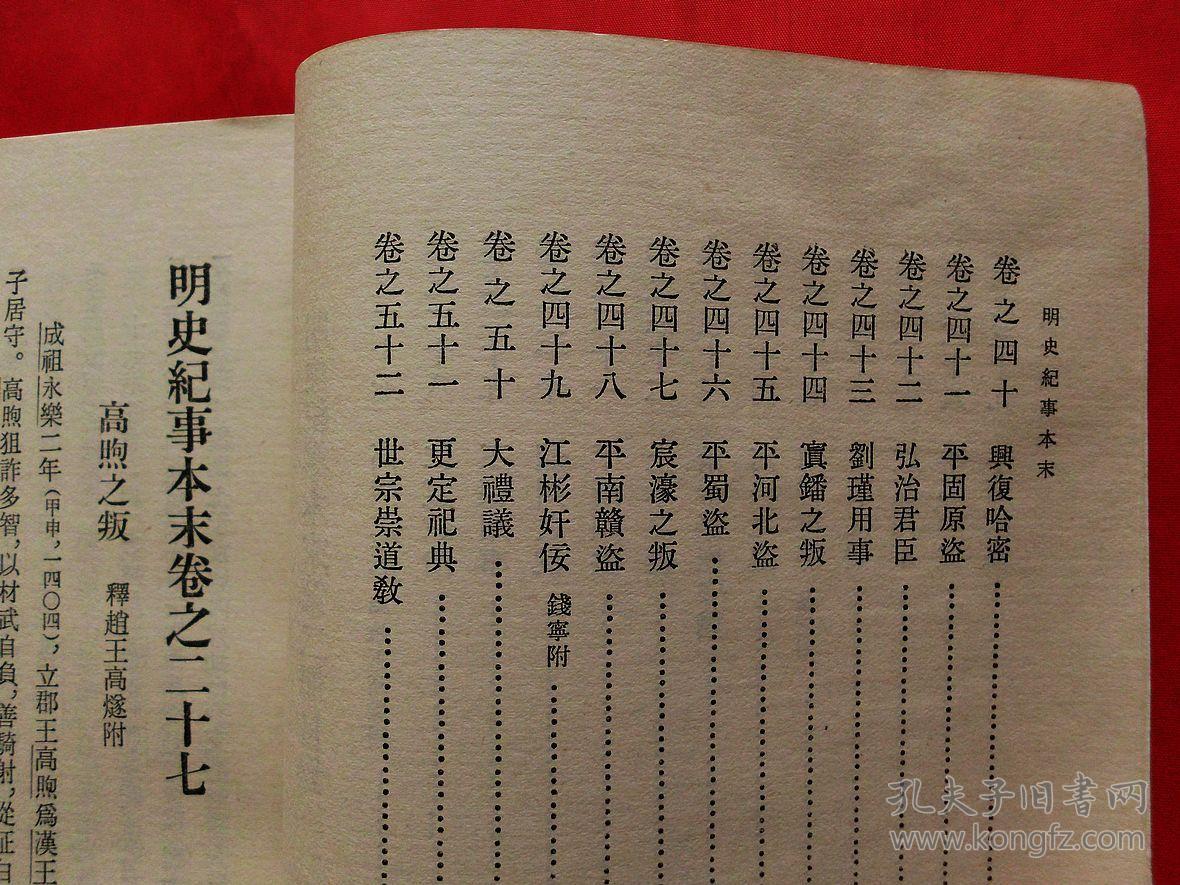 明史紀事本末
卷之四十 興復哈密
卷之四十一 平固原盜
卷之四十二 弘治君臣
卷之四十三 劉瑾用事
卷之四十四 寘鐇之叛
卷之四十五 平河北盜
卷之四十六 平蜀盜
卷之四十七 宸濠之叛
卷之四十八 平南贛盜
卷之四十九 江彬奸佞 錢寧附
卷之五十 大禮議
卷之五十一 更定祀典
卷之五十二 世宗崇道教
明史紀事本末卷之二十七
高煦之叛 釋趙王高燧附
成祖永樂二年(甲申,一四〇四),立郡王高煦爲漢王
子居守。高煦狙詐多智,以材武自負,善騎射,從征白
孔夫子旧书网
www.kongfz.com